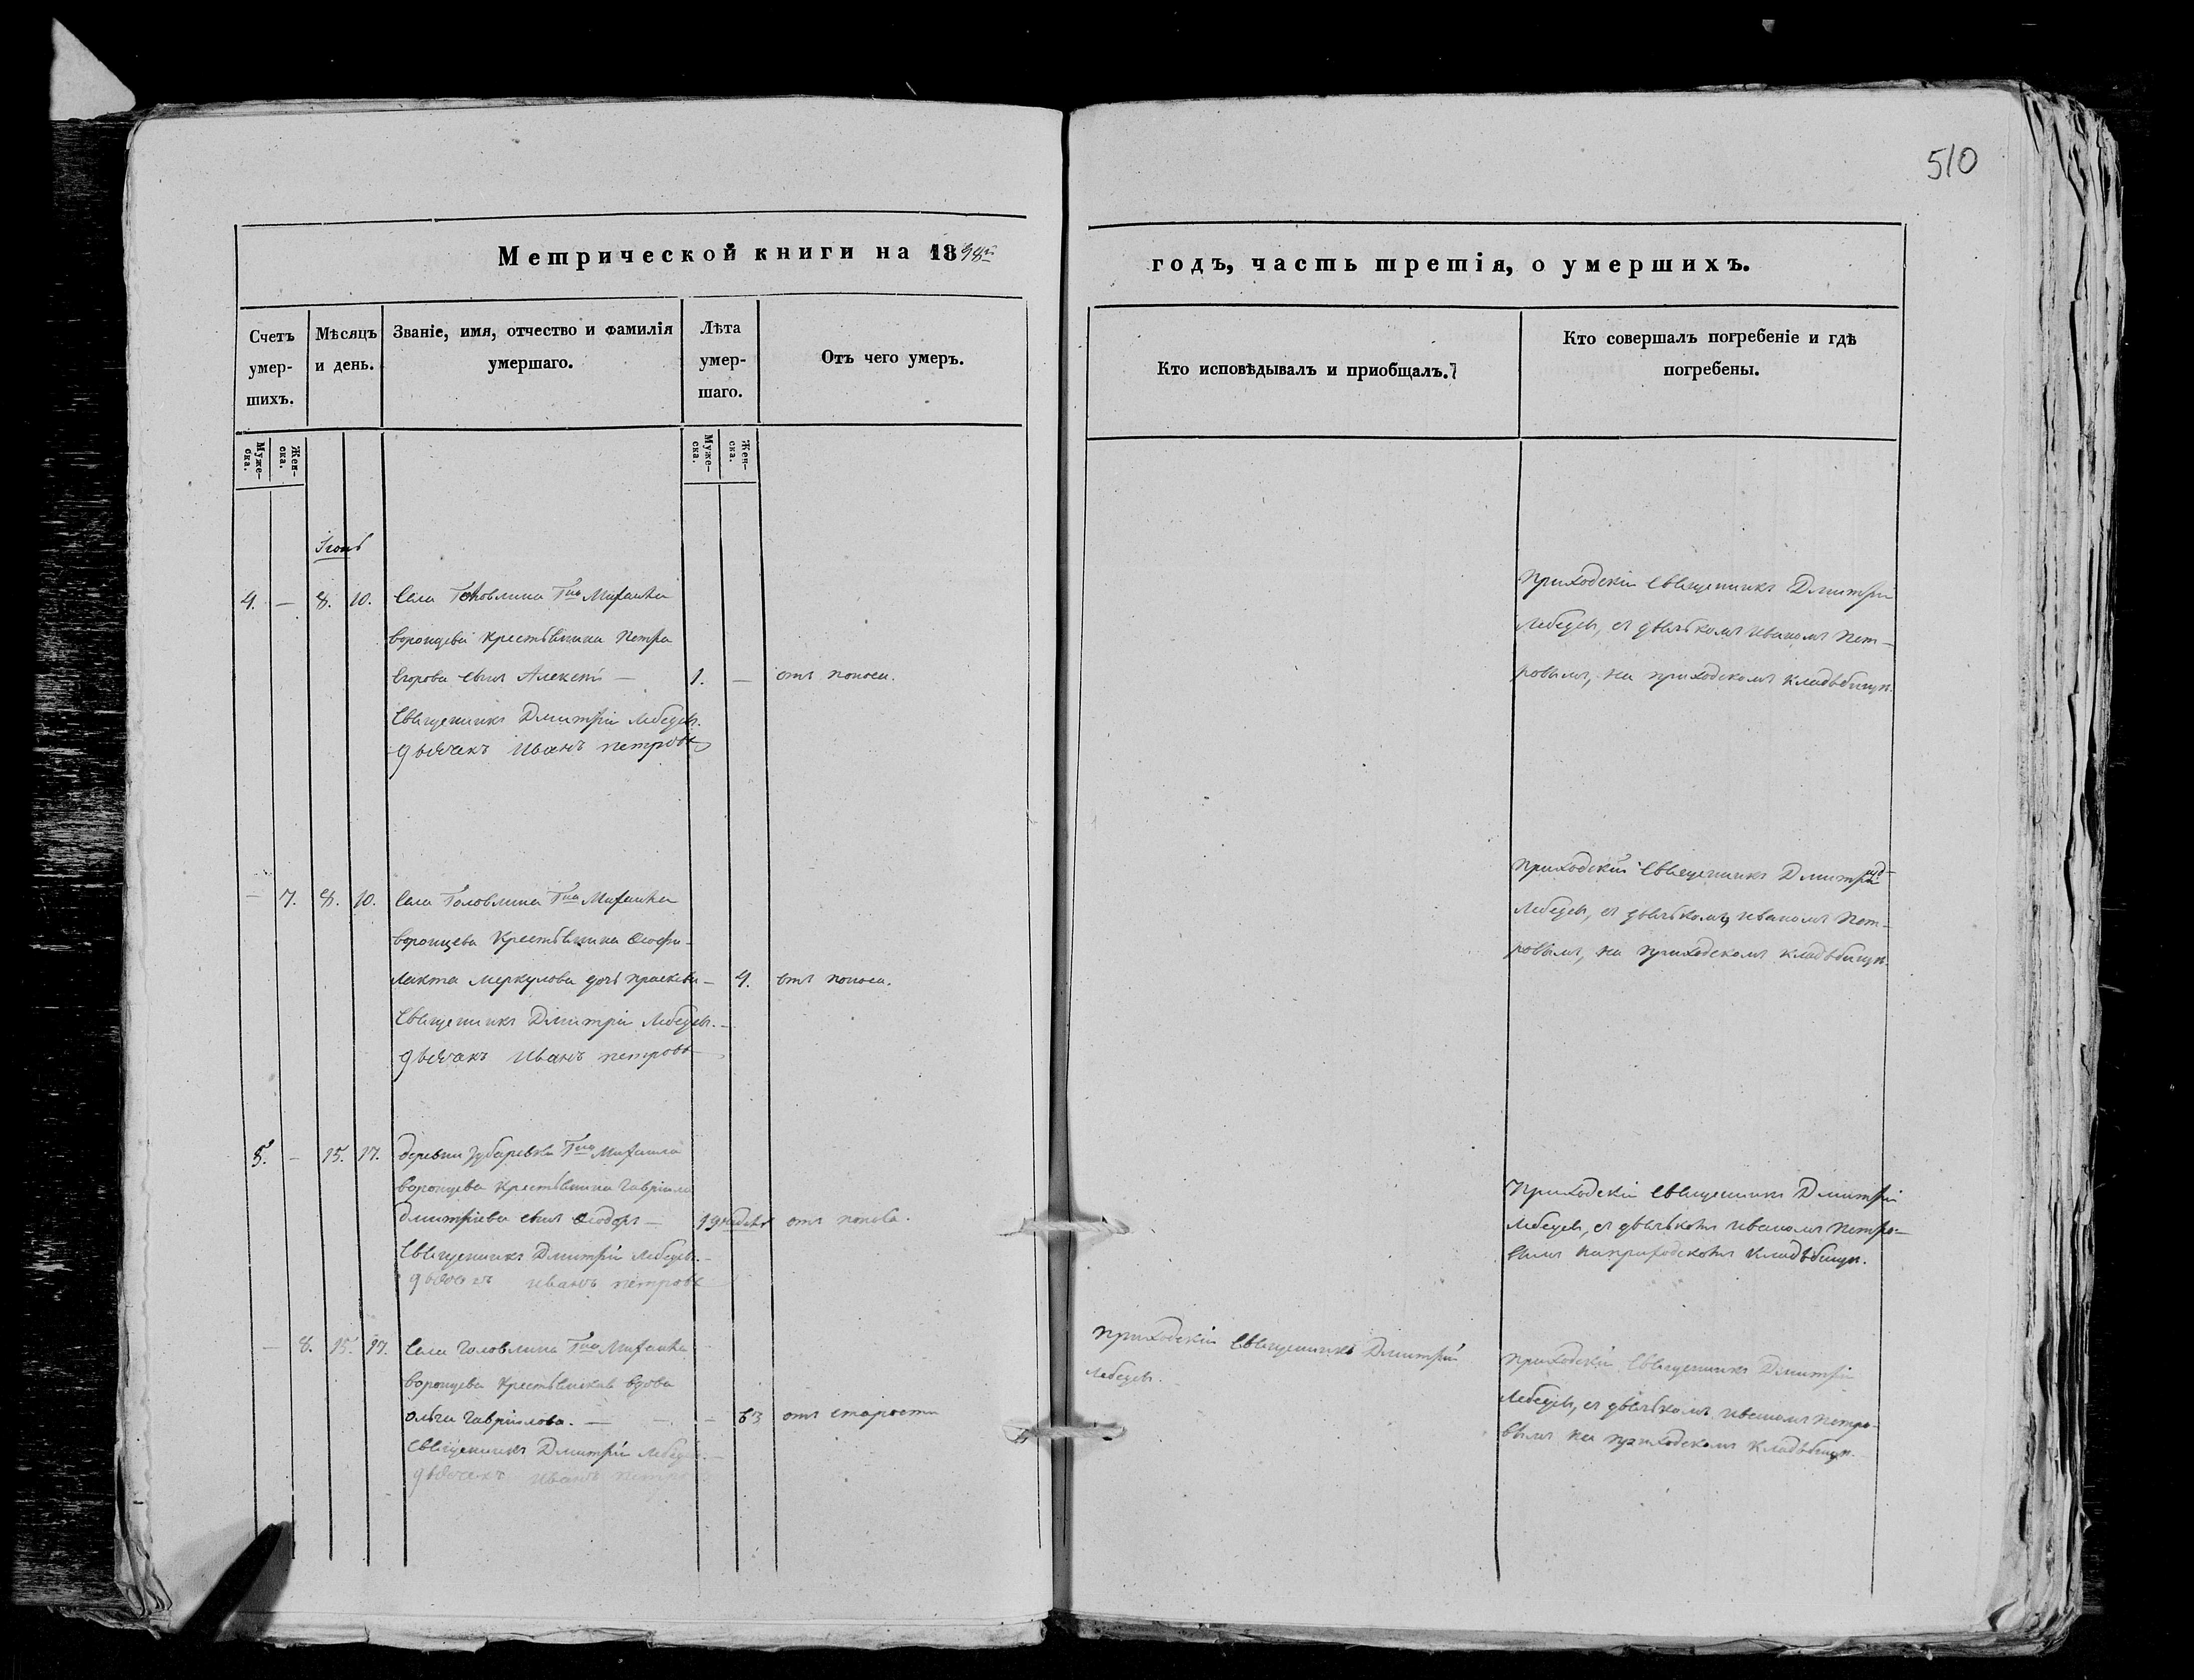 510
Метрической книги на 18
годъ, часть третія, о умершихъ.
Счетъ умер- шихъ.
Мѣсяцъ и день.
Званіе, имя, отчество и фамилія умершаго.
Лѣта умер- шаго.
Отъ чего умеръ.
Кто исповѣдывалъ и приобщалъ.
Кто совершалъ погребеніе и гдѣ погребены.
Муже- ска.
Жен- ска.
Муже- ска.
Жен- ска.
4. — 8. 10. Села Головлина Гна Михаила
Воронцева крестьянина Петра
Егорова сынъ Алексѣй — 1. — отъ поноса.
Священникъ Дмитрій Лебедевъ.
дьячекъ Иванъ петровъ
Приходскій Священникъ Дмитрій
Лебедевъ, съ дьячкомъ Иваномъ Пет-
ровымъ, на приходскомъ кладбищѣ.
— 7. 8. 10. Села Головлина Гна Михаила
Воронцева крестьянина Ѳеофи-
лакта Меркулова дочь — 4. отъ поноса.
Священникъ Дмитрій Лебедевъ.
дьячекъ Иванъ петровъ
Приходскій Священникъ Дмитрій
Лебедевъ, съ дьячкомъ Иваномъ Пет-
ровымъ, на приходскомъ кладбищѣ.
5. — 15. 17. деревни Зубаревки Гна Михаила
Воронцева крестьянина Гавріила
Дмитріева сынъ Ѳеодоръ — отъ поноса.
Священникъ Дмитрій Лебедевъ.
дьячекъ Иванъ петровъ
Приходскій Священникъ Дмитрій
Лебедевъ, съ дьячкомъ Иваномъ Петро-
вымъ на приходскомъ кладбищѣ.
— 8. 15. 17. Села Головлина Гна Михаила
Воронцева крестьянская вдова
Ольга Гаврилова. — — 63 отъ старости
Священникъ Дмитрій Лебедевъ.
дьячекъ Иванъ петровъ
Приходскій Священникъ Дмитрій
Лебедевъ.
Приходскій Священникъ Дмитрій
Лебедевъ, съ дьячкомъ Иваномъ Петро-
вымъ на приходскомъ кладбищѣ.